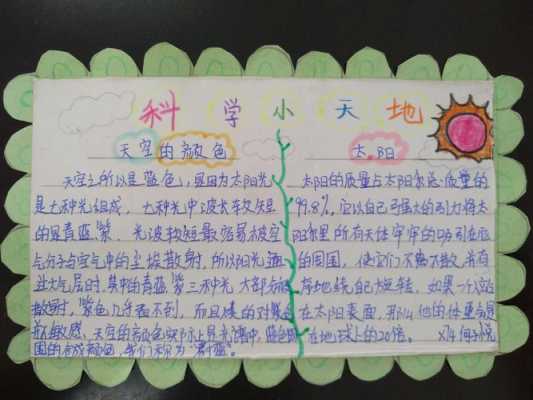 科学小天地
天空的颜色
天空之所以是蓝色,是因为太阳光
是七种光组成,七种光中波长较短
的是青蓝紫,光波较短最容易被空
气分子与空气中的尘埃散射,所以阳光通
过大气层时,其中的青蓝紫三种光大部分被
散射,紫色几乎看不到,而且人的对紫色
不敏感,天空的颜色实际上是光谱中,蓝色
围的合成颜色,我们称为"天蓝"。
太阳
太阳的质量占太阳系总质量的
99.8%,它以自己强大的引力将太
阳系里所有天体牢牢的吸引在它
的周围,使它们不离不散,井有
有地绕自己旋转,如果一个人站
在太阳表面,那么他的体重会是
在地球上的20倍。